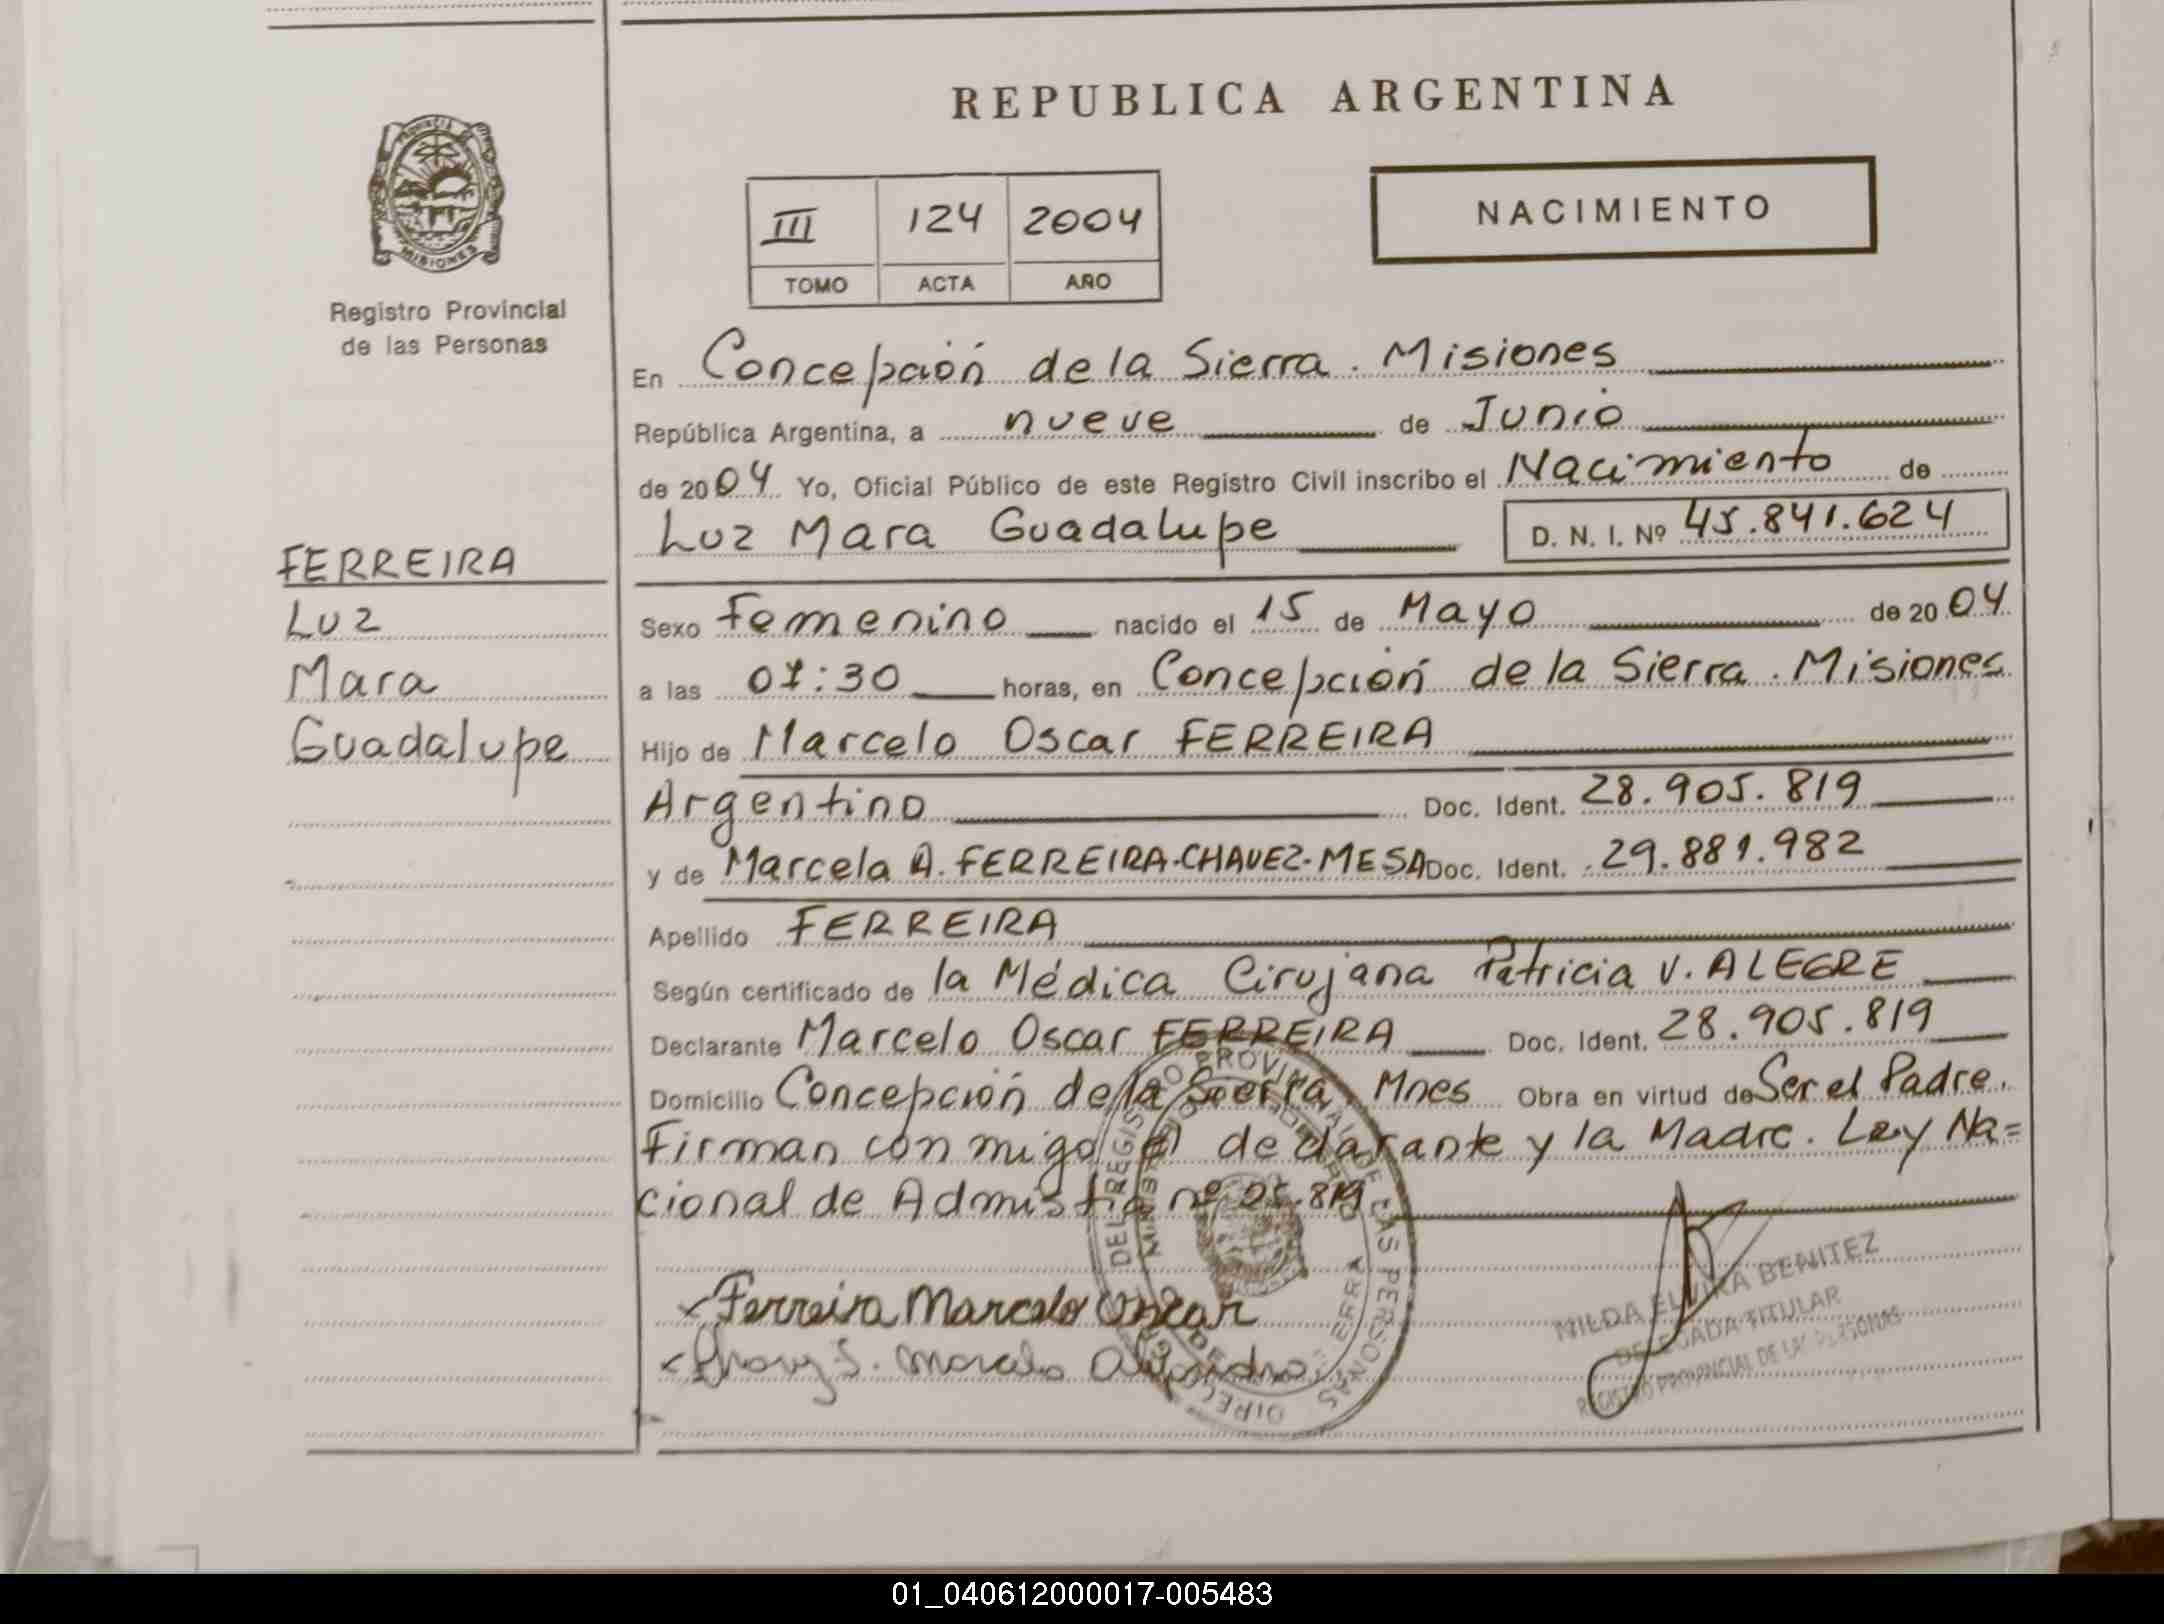 REPUBLICA ARGENTINA
PROVINCIA DE
MISIONES
Registro Provincial
de las Personas
III 124 2004
TOMO ACTA AÑO
NACIMIENTO
En Concepción de la Sierra. Misiones
República Argentina, a nueve de Junio
de 2004 Yo, Oficial Público de este Registro Civil inscribo el Nacimiento de
Luz Mara Guadalupe D. N. I. Nº 45.841.624
FERREIRA
Luz
Mara
Guadalupe
Sexo Femenino nacido el 15 de Mayo de 2004
a las 07:30 horas, en Concepción de la Sierra. Misiones
Hijo de Marcelo Oscar FERREIRA
Argentino Doc. Ident. 28.905.819
y de Marcela A. FERREIRA-CHAVEZ-MESA Doc. Ident. 29.881.982
Apellido FERREIRA
Según certificado de la Médica Cirujana Patricia V. ALEGRE
Declarante Marcelo Oscar FERREIRA Doc. Ident. 28.905.819
Domicilio Concepción de la Sierra, Mnes Obra en virtud de Ser el Padre.
Firman conmigo el declarante y la Madre. Ley Na=
cional de Admistia nº 25.819
Ferreira Marcelo Oscar
NILDA ELVIRA BENITEZ
DELEGADA TITULAR
REGISTRO PROVINCIAL DE LAS PERSONAS
DEL REGISTRO PROVINCIAL DE LAS PERSONAS
01_040612000017-005483